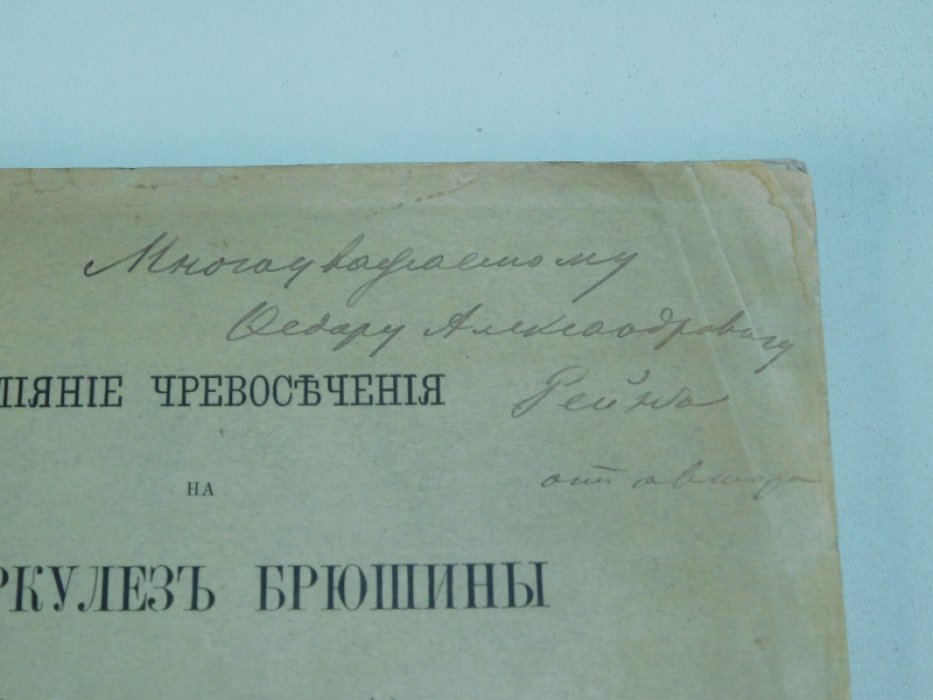 Многоуважаемому
Ѳедору Александровичу
ЛІЯНІЕ ЧРЕВОСѢЧЕНІЯ Рейнъ
НА от автора
РКУЛЕЗЪ БРЮШИНЫ